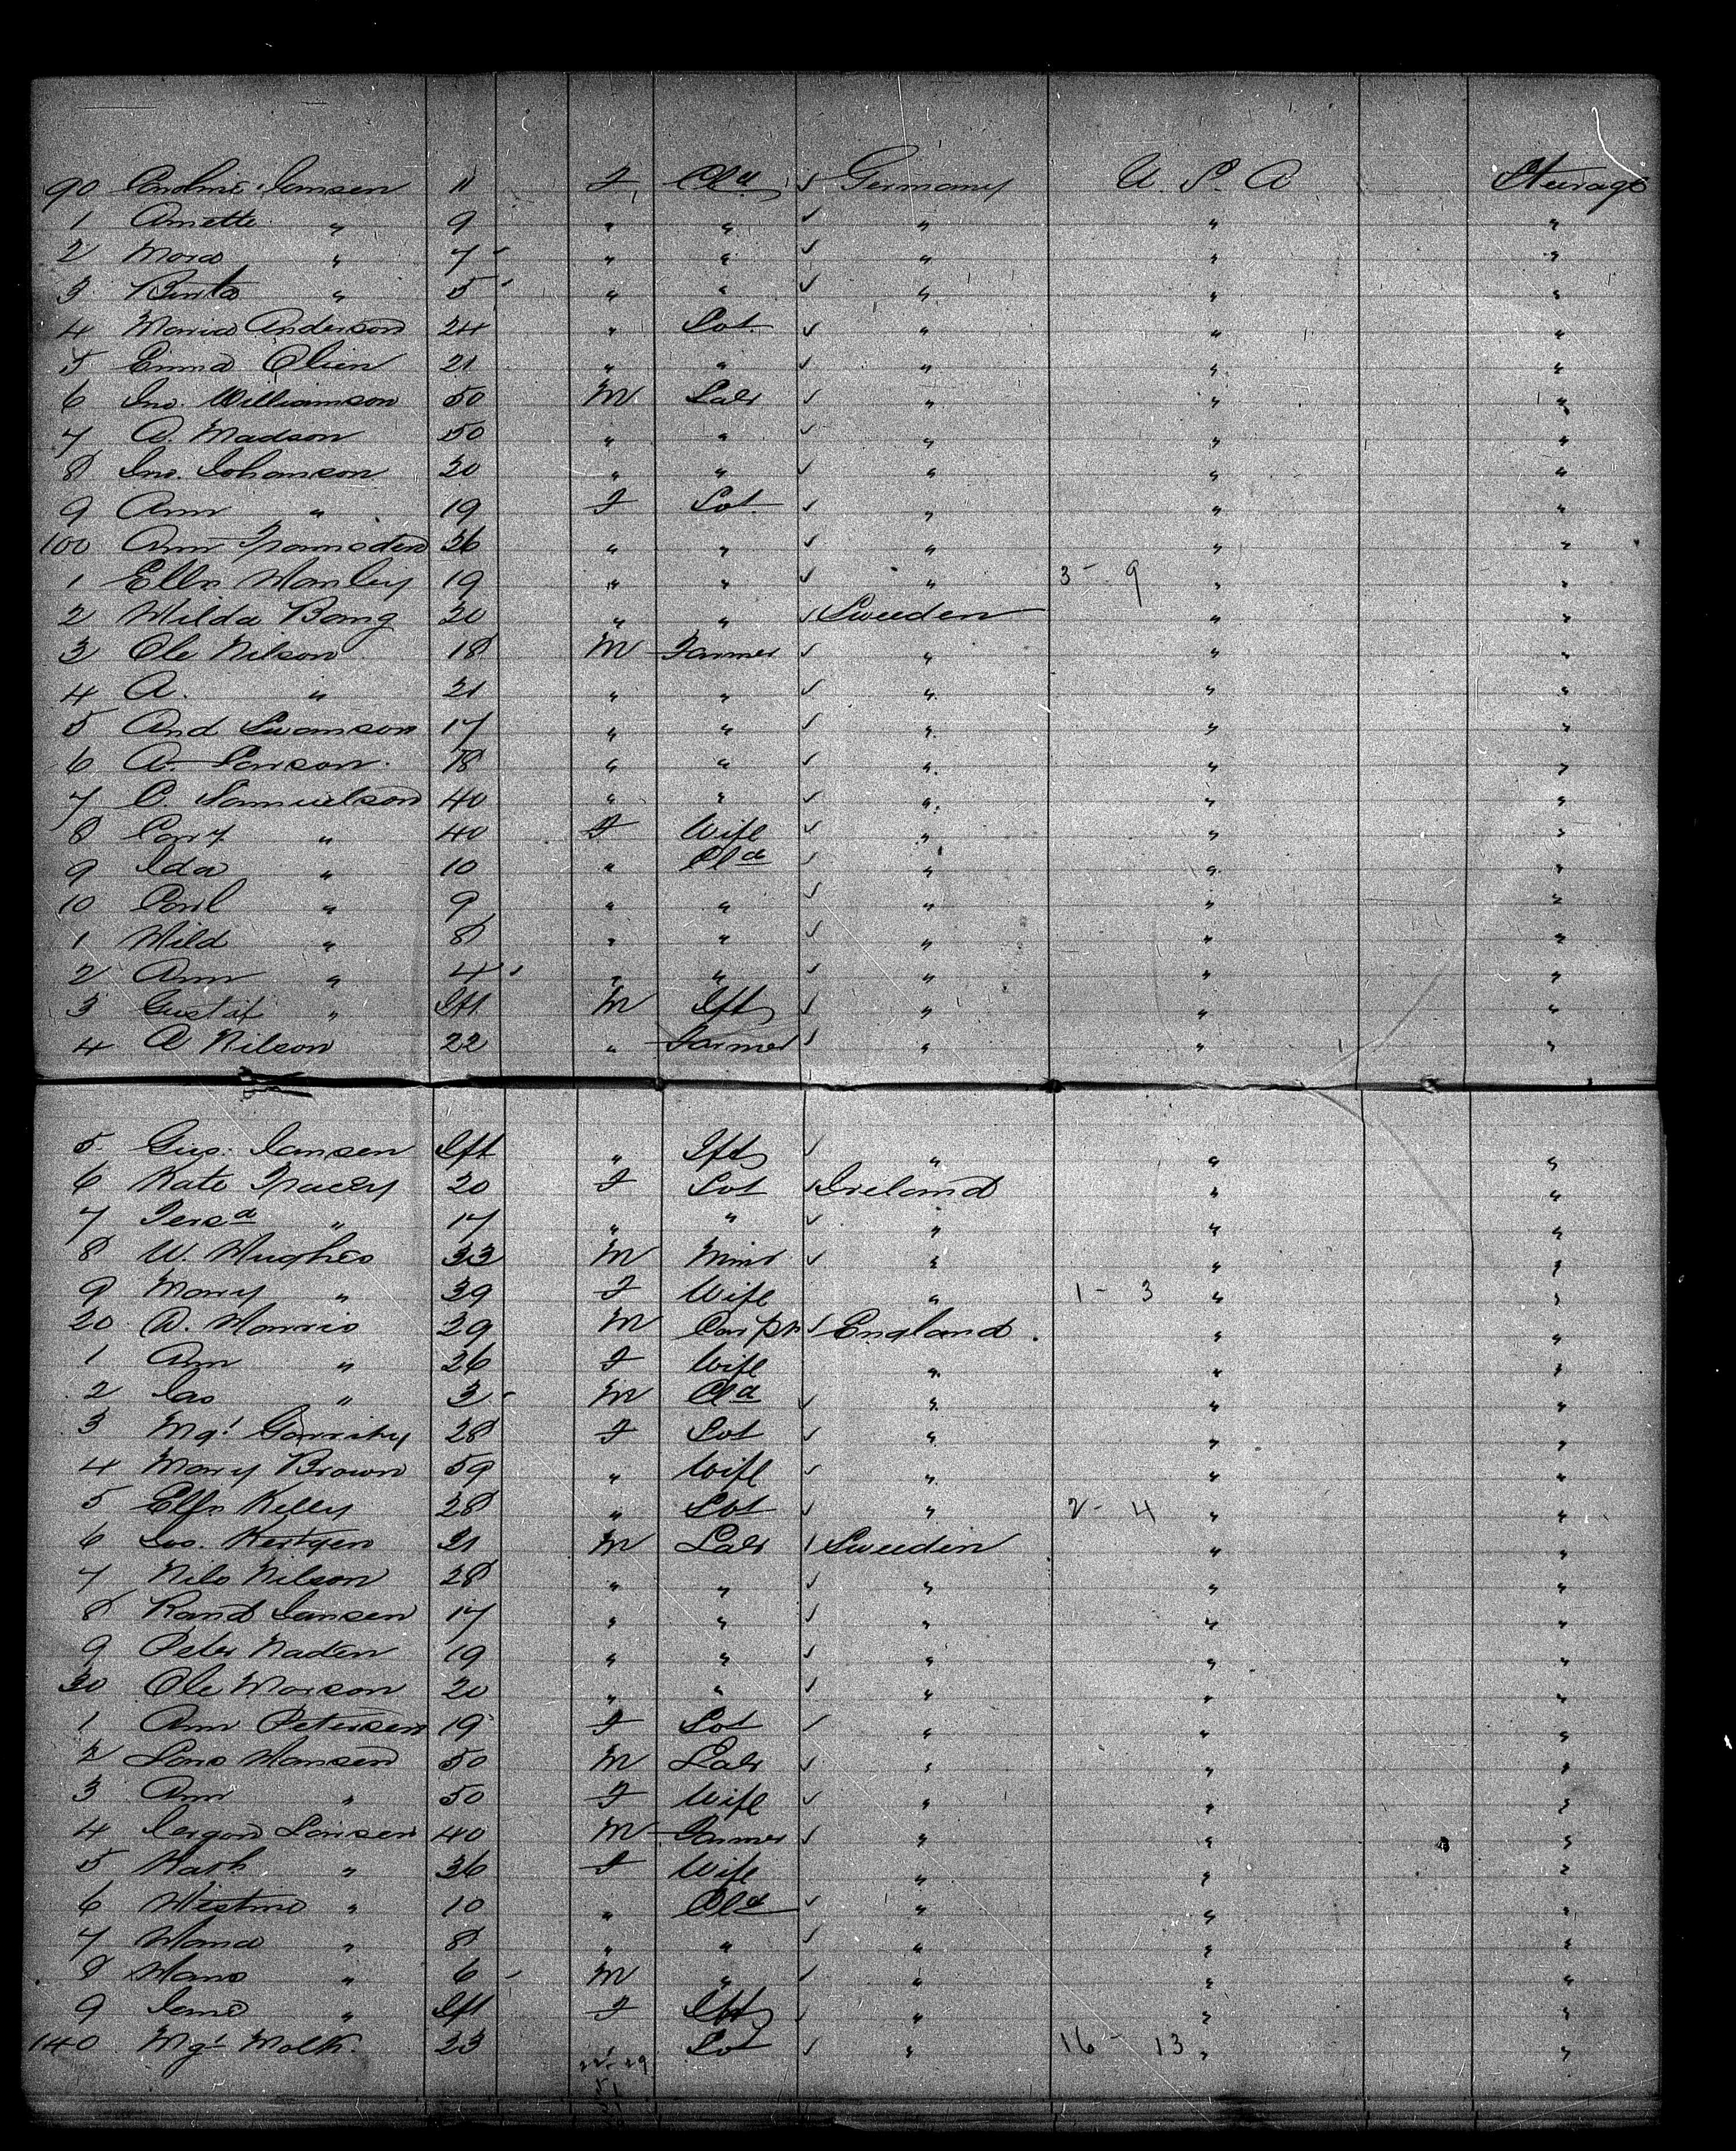 90 Jansen 11 F Cld ✓ Germany U. S. A Steerage
1 Annette " 9 " " ✓ " " "
2 " 7 " " ✓ " " "
3 " 5 " " ✓ " " "
4 Maria Anderson 24 " Spt ✓ " " "
5 Emma Olsen 21 " " ✓ " " "
6 Jno. Williamson 50 M Labr ✓ " " "
7 A. Madson 50 " " ✓ " " "
8 Jno. Johanson 20 " " ✓ " " "
9 Ann " 19 F Spt ✓ " " "
100 Ann 26 " " ✓ " " "
1 Ellen Hanley 19 " " ✓ " 3 - 9 " "
2 Hilda Bang 20 " " ✓ Sweeden " "
3 Ole Nilson 18 M Farmer ✓ " " "
4 A. " 21 " " ✓ " " "
5 And Swanson 17 " " ✓ " " "
6 A. Larson 18 " " ✓ " " "
7 C. Samuelson 40 " " ✓ " " "
8 Cary " 40 F Wife ✓ " " "
9 Ida " 10 " Cld ✓ " " "
10 Carl " 9 " " ✓ " " "
1 Hild " 8 " " ✓ " " "
2 Ann " 4 " " ✓ " " "
3 Gustaf " Ift M Ift ✓ " " "
4 A Nilson 22 " Farmer ✓ " " "
5 Gus. Jansen Ift " Ift ✓ " " "
6 Kate Tracey 20 F Spt ✓ Ireland " "
7 Teresa " 17 " " ✓ " " "
8 W. Hughes 33 M Minr ✓ " " "
9 Mary " 39 F Wife " 1 - 3 " "
20 D. Harris 29 M Carptr ✓ England " "
1 Ann " 26 F Wife " " "
2 Jas " 3 M Cld ✓ " " "
3 Mgt Garrity 28 F Spt ✓ " " "
4 Mary Brown 59 " Wife ✓ " " "
5 Ellen Kelly 28 " Spt ✓ " 2 - 4 " "
6 Jos. 21 M Labr ✓ Sweeden " "
7 Nils Nilson 28 " " ✓ " " "
8 Rand Jansen 17 " " ✓ " " "
9 Peter Naden 19 " " ✓ " " "
30 Ole Marson 20 " " ✓ " " "
1 Ann Petersen 19 F Spt ✓ " " "
2 Lars Hansen 50 M Labr ✓ " " "
3 Ann " 50 F Wife ✓ " " "
4 Larsen 40 M Farmer ✓ " " "
5 Kath " 36 F Wife " " "
6 " 10 " Cld ✓ " " "
7 Hana " 8 " " ✓ " " "
8 Hans " 6 M " ✓ " " "
9 " Ift F Ift ✓ " " "
140 Mgt 23 Spt ✓ " 16 - 13 " "